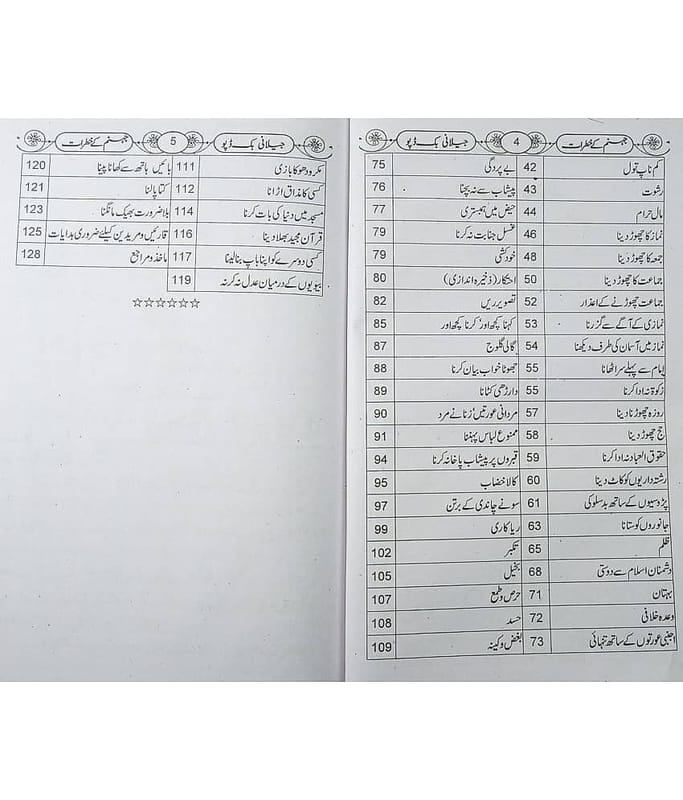 جہنم کے خطرات 4 جیلانی بک ڈپو
کم ناپ تول 42 بے پردگی 75
رشوت 43 پیشاب سے نہ بچنا 76
مال حرام 44 حیض میں ہمبستری 77
نماز کا چھوڑ دینا 46 غسل جنابت نہ کرنا 79
جمعہ کا چھوڑ دینا 48 خودکشی 79
جماعت کا چھوڑ دینا 50 احتکار (ذخیرہ اندازی) 80
جماعت چھوڑنے کے اعذار 52 تصویریں 82
نمازی کے آگے سے گزرنا 53 کہنا کچھ اور‘ کرنا کچھ اور 85
نماز میں آسمان کی طرف دیکھنا 54 گالی گلوچ 87
امام سے پہلے سر اٹھانا 55 جھوٹا خواب بیان کرنا 88
زکوٰۃ نہ ادا کرنا 55 داڑھی کٹانا 89
روزہ چھوڑنا دینا 57 مردانی عورتیں زنانے مرد 90
حج چھوڑ دینا 58 ممنوع لباس پہننا 91
حقوق العباد نہ ادا کرنا 59 قبروں پر پیشاب پاخانہ کرنا 94
رشتہ داریوں کو کاٹ دینا 60 کالا خضاب 95
پڑوسیوں کے ساتھ بدسلوکی 61 سونے چاندی کے برتن 97
جانوروں کو ستانا 63 ریاکاری 99
ظلم 65 تکبر 102
دشمنان اسلام سے دوستی 68 بخیل 105
بہتان 71 حرص و طمع 107
وعدہ خلافی 72 حسد 108
اجنبی عورتوں کے ساتھ تنہائی 73 بغض و کینہ 109
جہنم کے خطرات 5 جیلانی بک ڈپو
مکر و دھوکا بازی 111 بائیں ہاتھ سے کھانا پینا 120
کسی کا مذاق اڑانا 112 کتا پالنا 121
مسجد میں دنیا کی بات کرنا 114 بلا ضرورت بھیک مانگنا 123
قرآن مجید بھلا دینا 116 قارئین و مریدین کیلئے ضروری ہدایات 125
کسی دوسرے کو اپنا باپ بنا لینا 117 ماخذ و مراجع 128
بیویوں کے درمیان عدل نہ کرنہ 119
☆☆☆☆☆☆